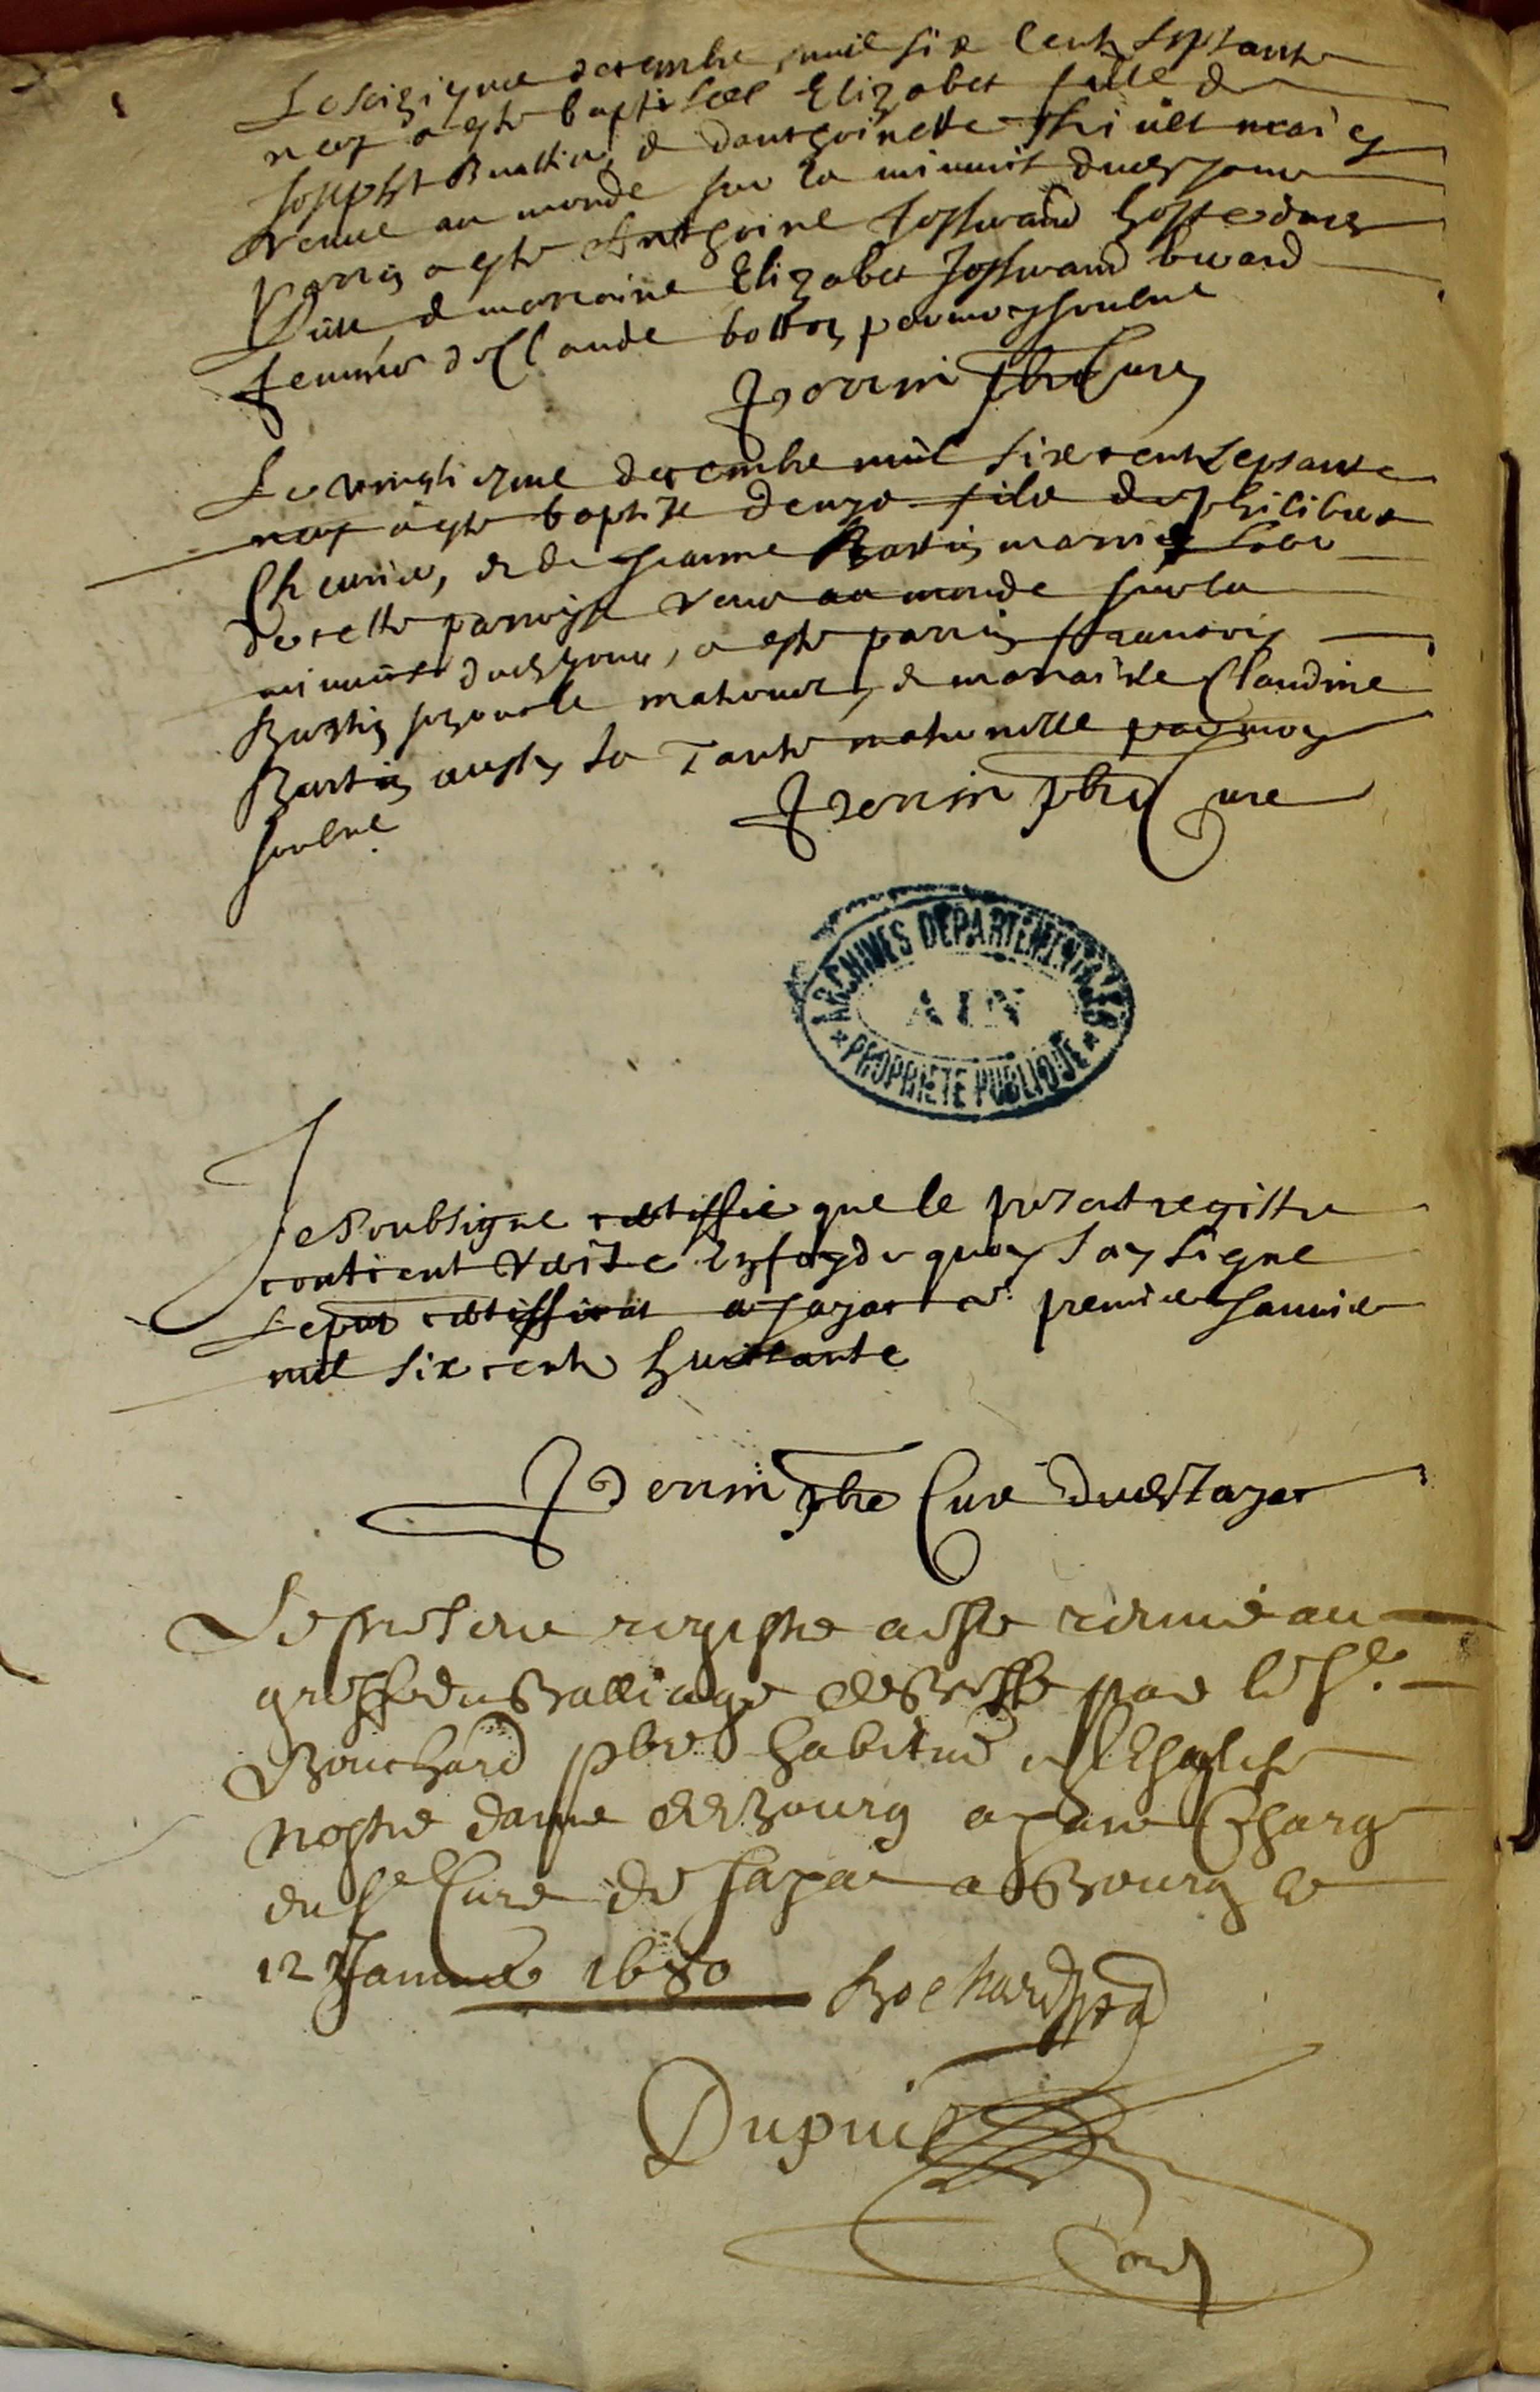 Le seiziyme decembre mil six cent septante
neuf a este baptisee Elizabet fille de
Joseph et d'anthoinette
venue au monde sur la minuit dud jour
parrin a este Anthoine hoste dud
lieu & marraine Elizabet
femme de Claude par moy soubne
Perrin pbre Cure
Le vingtiesme decembre mil six cent septante
neuf a este baptise denys fils de philibert
et de Jeanne Bastin mariés
de cette parroisse venu au monde sur la
minuict dud jour, a este parrin francois
Bastin so oncle maternel, & marraine Claudine
Bastin aussy sa Tante maternelle par moy
soubne
Perrin pbre Cure
ARCHIVES DEPARTEMENTALES
AIN
* PROPRIETE PUBLIQUE *
Je soubsigne certiffie que le present registre
contient verite En foy de quoy J'ay signe
le pnt certifficat a Jayat ce premier Janvier
mil six cents huictante
Perrin pbre Cure dud Jayat
Le present registre a este remis au
greffe du Balliage de Bresse par le Sr.
Bouchard pbre habitué en l'Esglise
nostre dame de Bourg ayant Charge
du Sr Curé de Jayat a Bourg le
12 Janvier 1680 Bochard
Dupuis